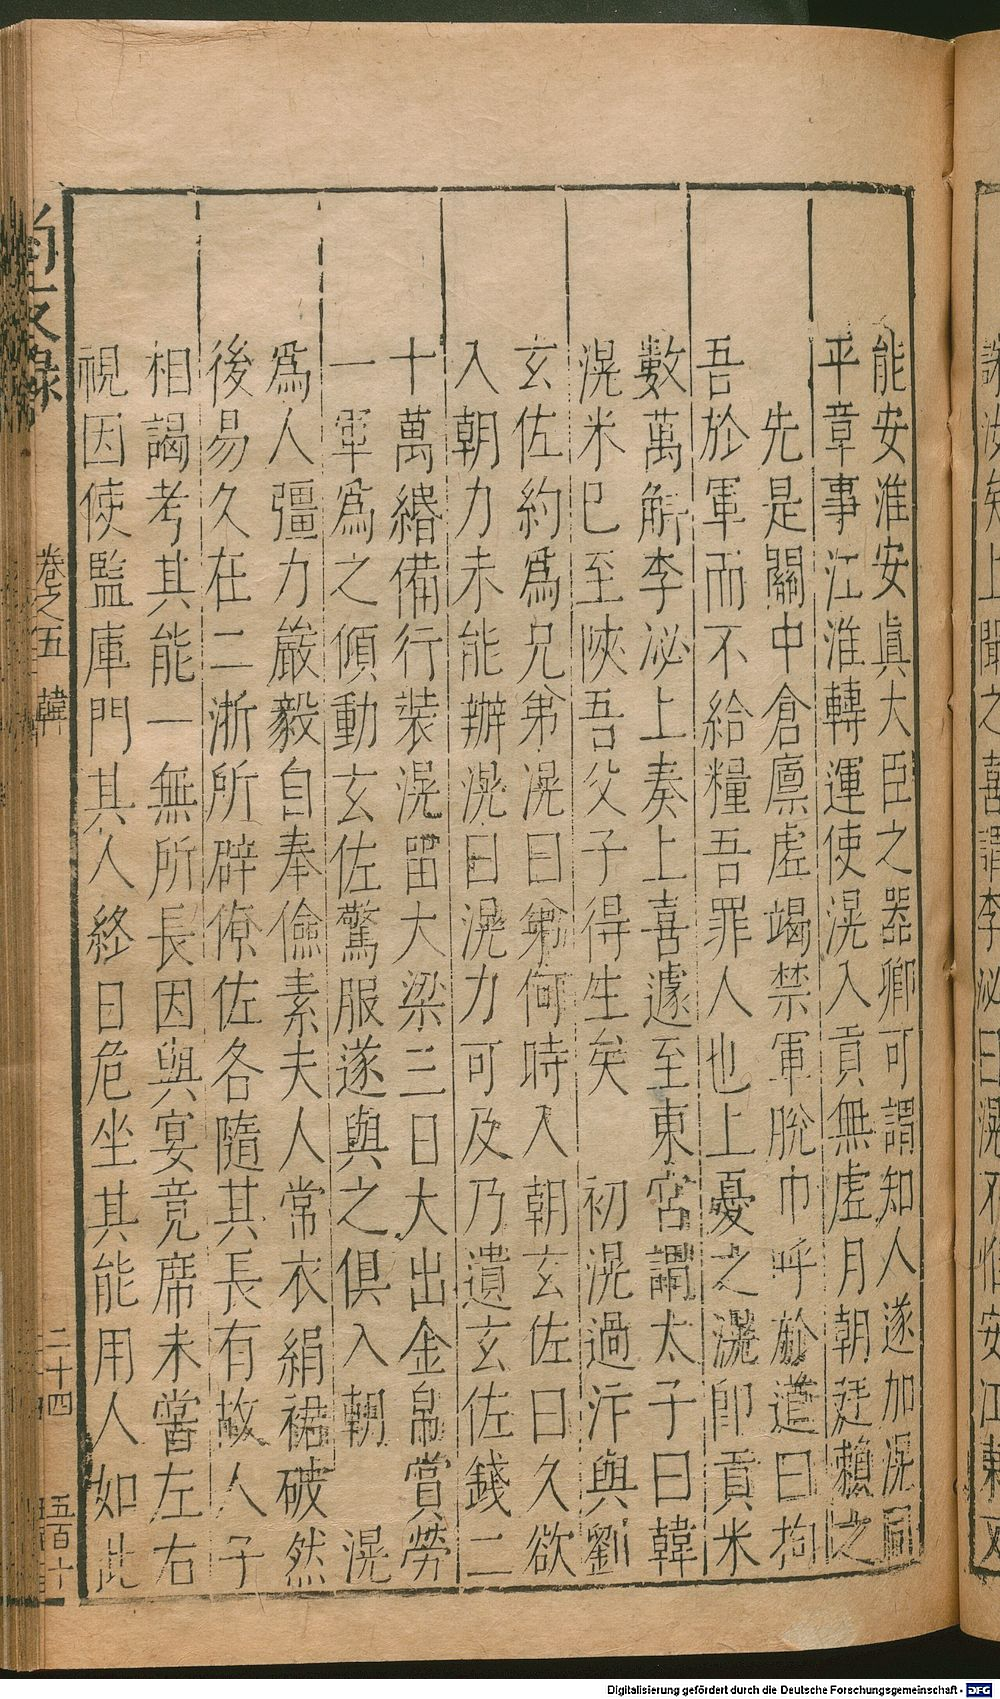 能安淮安眞大臣之器卿可謂知人遂加滉同
平章事江淮轉運使滉入貢無虛月朝廷賴之
先是關中倉廩虛竭禁軍脫巾呼於道曰拘
吾於軍而不給糧吾罪人也上憂之滉卽貢米
數萬斛李泌上奏上喜遽至東宮謂太子曰韓
滉米已至陝吾父子得生矣　初滉過汴與劉
玄佐約爲兄弟滉曰弟何時入朝玄佐曰久欲
入朝力未能辦滉曰滉力可及乃遺玄佐錢二
十萬緡備行裝滉留大梁三日大出金帛賞勞
一軍爲之傾動玄佐驚服遂與之俱入朝　滉
爲人彊力嚴毅自奉儉素夫人常衣絹裙破然
後易久在二浙所辟僚佐各隨其長有故人子
相謁考其能一無所長因與宴竟席未嘗左右
視因使監庫門其人終日危坐其能用人如此
卷之五　韓
二十四
五百十
Digitalisierung gefördert durch die Deutsche Forschungsgemeinschaft - DFG